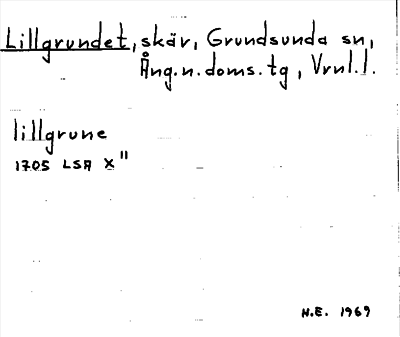 Lillgrundet, skär, Grundsunda sn,
Ång.n.doms.tg, Vrnl.l.
lillgrune
1705 LSA X"
H.E. 1969